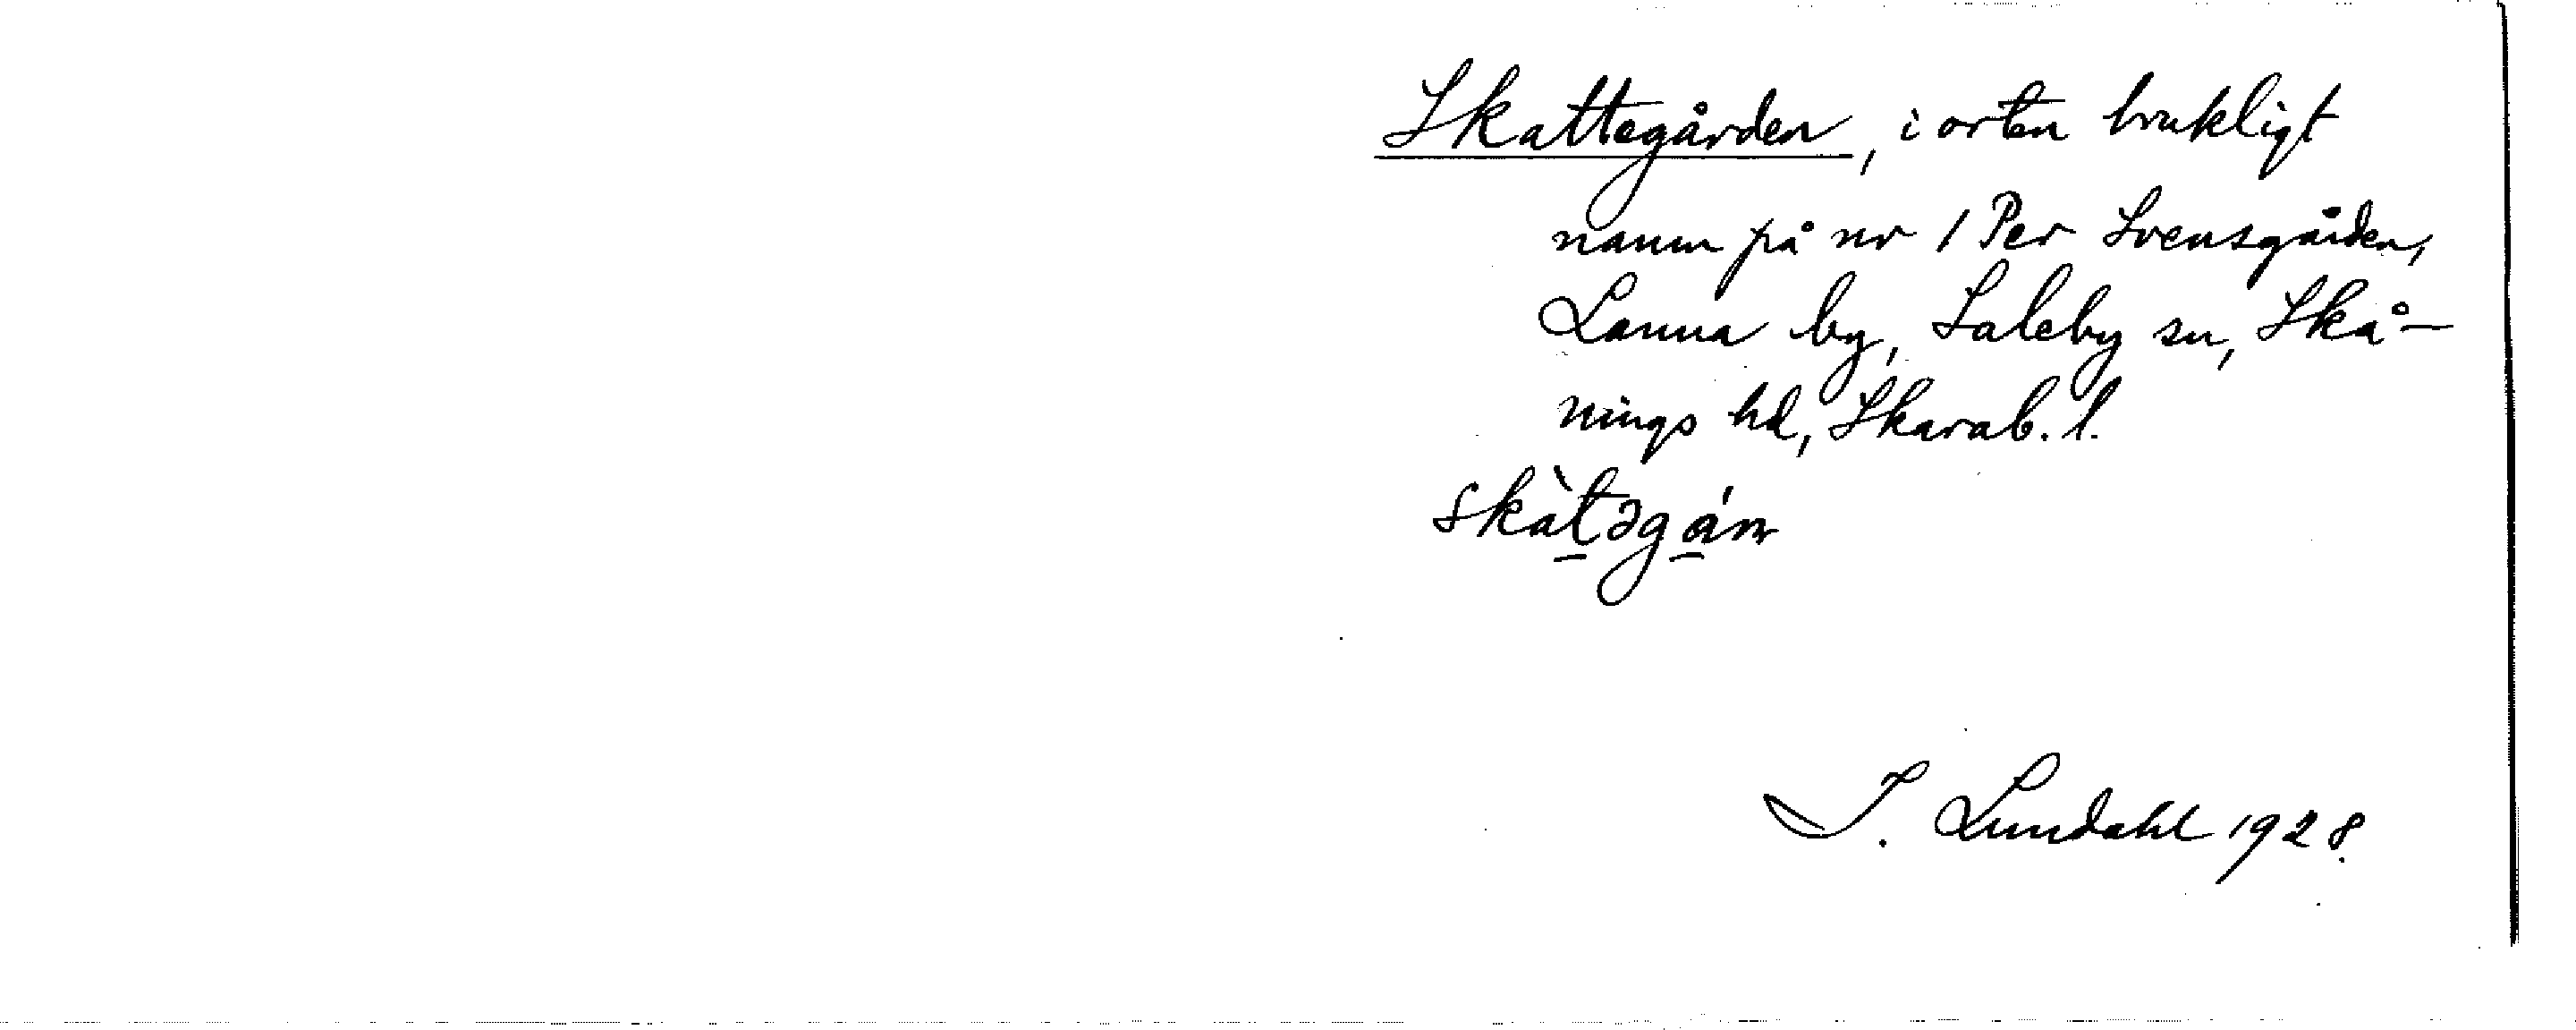 Skattegården, i orten brukligt
namn på nr 1 Per Svensgården,
Lanna by, Saleby sn, Skå-
nings hd, Skarab. l.
skàt̲əgá̲n
I. Lundahl 1928.